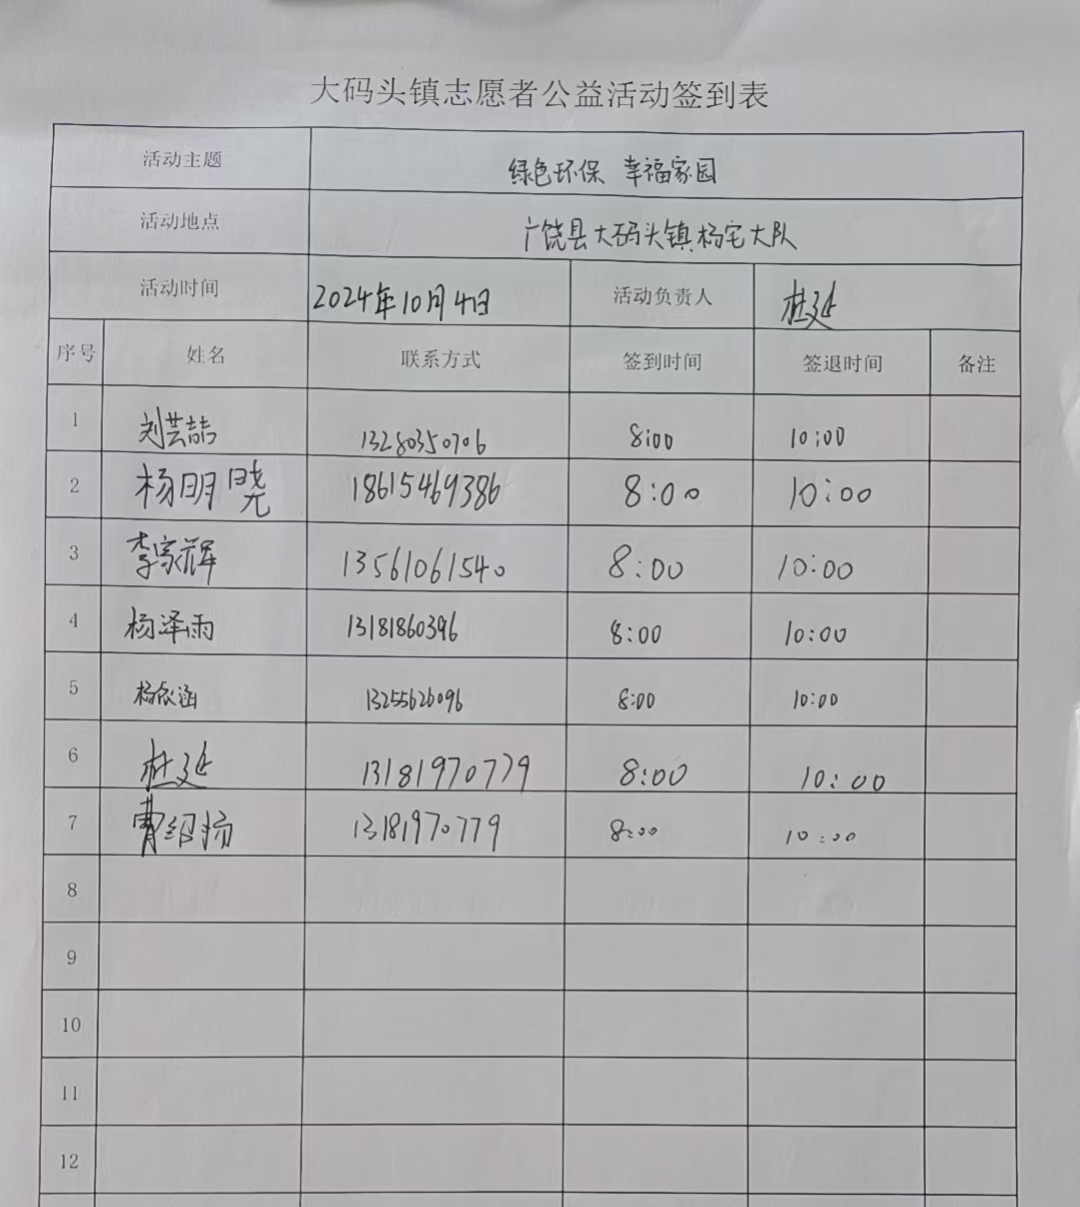 大码头镇志愿者公益活动签到表
活动主题 绿色环保 幸福家园
活动地点 广饶县大码头镇杨宅大队
活动时间 2024年10月4日 活动负责人 杜延
序号 姓名 联系方式 签到时间 签退时间 备注
1 刘芸喆 13280350706 8:00 10:00
2 杨明晓 18615469386 8:00 10:00
3 李家辉 13561061540 8:00 10:00
4 杨泽雨 13181860396 8:00 10:00
5 杨依涵 13255620096 8:00 10:00
6 杜延 13181970779 8:00 10:00
7 曹绍扬 13181970779 8:00 10:00
8
9
10
11
12